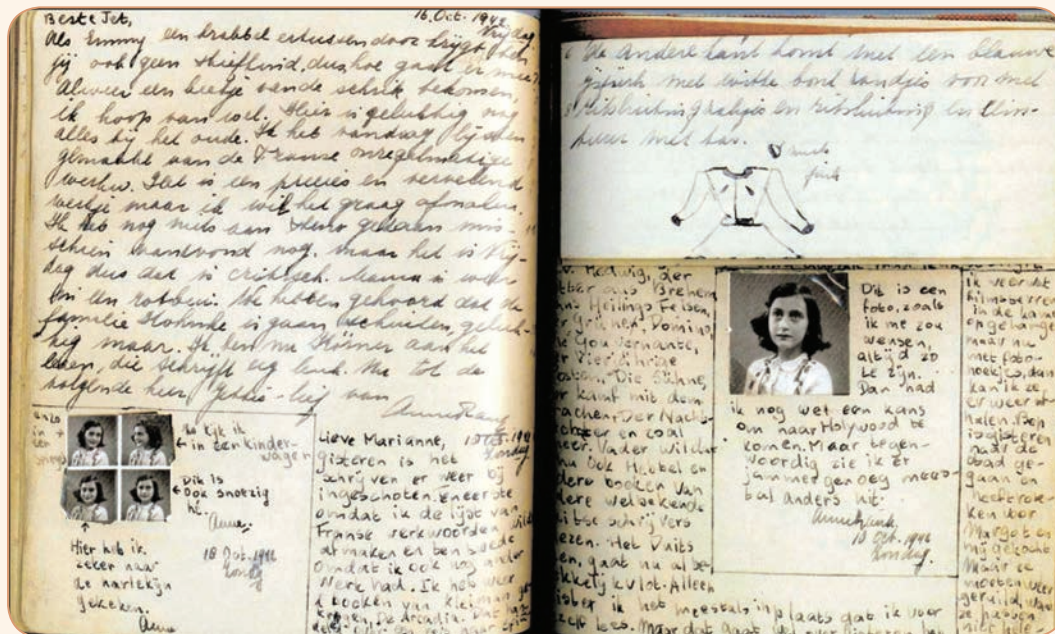 Beste Jet,
16. Oct. 1942
Vrijdag
Als Emmy een krabbel ertussendoor krijgt, ben
jij ook geen stiefkind, dus hoe gaat er mee?
Alweer een beetje van de schrik bekomen,
ik hoop van wel. Hier is gelukkig nog
alles bij het oude. Ik heb vandaag lijsten
gemaakt van de Franse onregelmatige
werkw. Het is een precies en vervelend
werkje maar ik wil het graag afmaken.
Ik heb nog niets aan Steno gedaan mis-
schien vanavond nog, maar het is Vrij-
dag dus dat is critisch. Mama is weer
We hebben gehoord dat de
familie is gaan schuilen, geluk-
kig maar. Ik ben nu Körner aan het
lezen, die schrijft erg leuk. Nu tot de
volgende keer Jetje-lief van
Anne Frank
in een
zo kijk ik
in een kinder-
wagen
Dit is
ook snoezig
hè.
Anne.
Hier heb ik
zeker naar
de harlekijn
gekeken.
Anne
18 Oct. 1942
Zondag
Lieve Marianne,
Zondag
gisteren is het
schrijven er weer bij
ingeschoten. Eneerste
omdat ik de lijst van
Franse werkwoorden wilde
afmaken en ten tweede
omdat ik ook nog ander
werk had. Ik heb weer
2 boeken van Kleiman ge-
kregen, De Arcadia. Dat
de andere kant komt met een blauwe
met witte bont randjes voor met
en
met
Hedwig, der
aus Bremen
Hans Heilings Felsen,
Der Grüne Domino,
Die Gouvernante,
Der Vierjährige
Posten, Die Sühne,
Der Kampf mit dem
Drachen, Der Nacht-
wächter en zoal
meer. Vader wil dat
nu ook Hebbel en
andere boeken van
andere welbekende
Duitse schrijvers
lezen. Het Duits
lezen, gaat nu al be-
trekkelijk vlot. Alleen
fluister ik het meestal in plaats dat ik voor
mezelf lees. Maar dat gaat wel over
Dit is een
foto, zoals
ik me zou
wensen,
altijd zo
te zijn.
Dan had
ik nog wel een kans
om naar Holywood te
komen. Maar tegen-
woordig zie ik er
jammer genoeg mees-
tal anders uit.
Anne Frank.
18 Oct. 1942
Zondag.
ik weer de
filmsterren
in de kamer
opgehangen
maar nu
met foto-
hoekjes, dan
kan ik ze,
er weer af-
halen. Bep
is gisteren
naar de
stad ge-
gaan en
heeft rok-
ken voor
Margot en
mij gekocht.
Maar ze
moeten weer
geruild, want
ze passen
niet